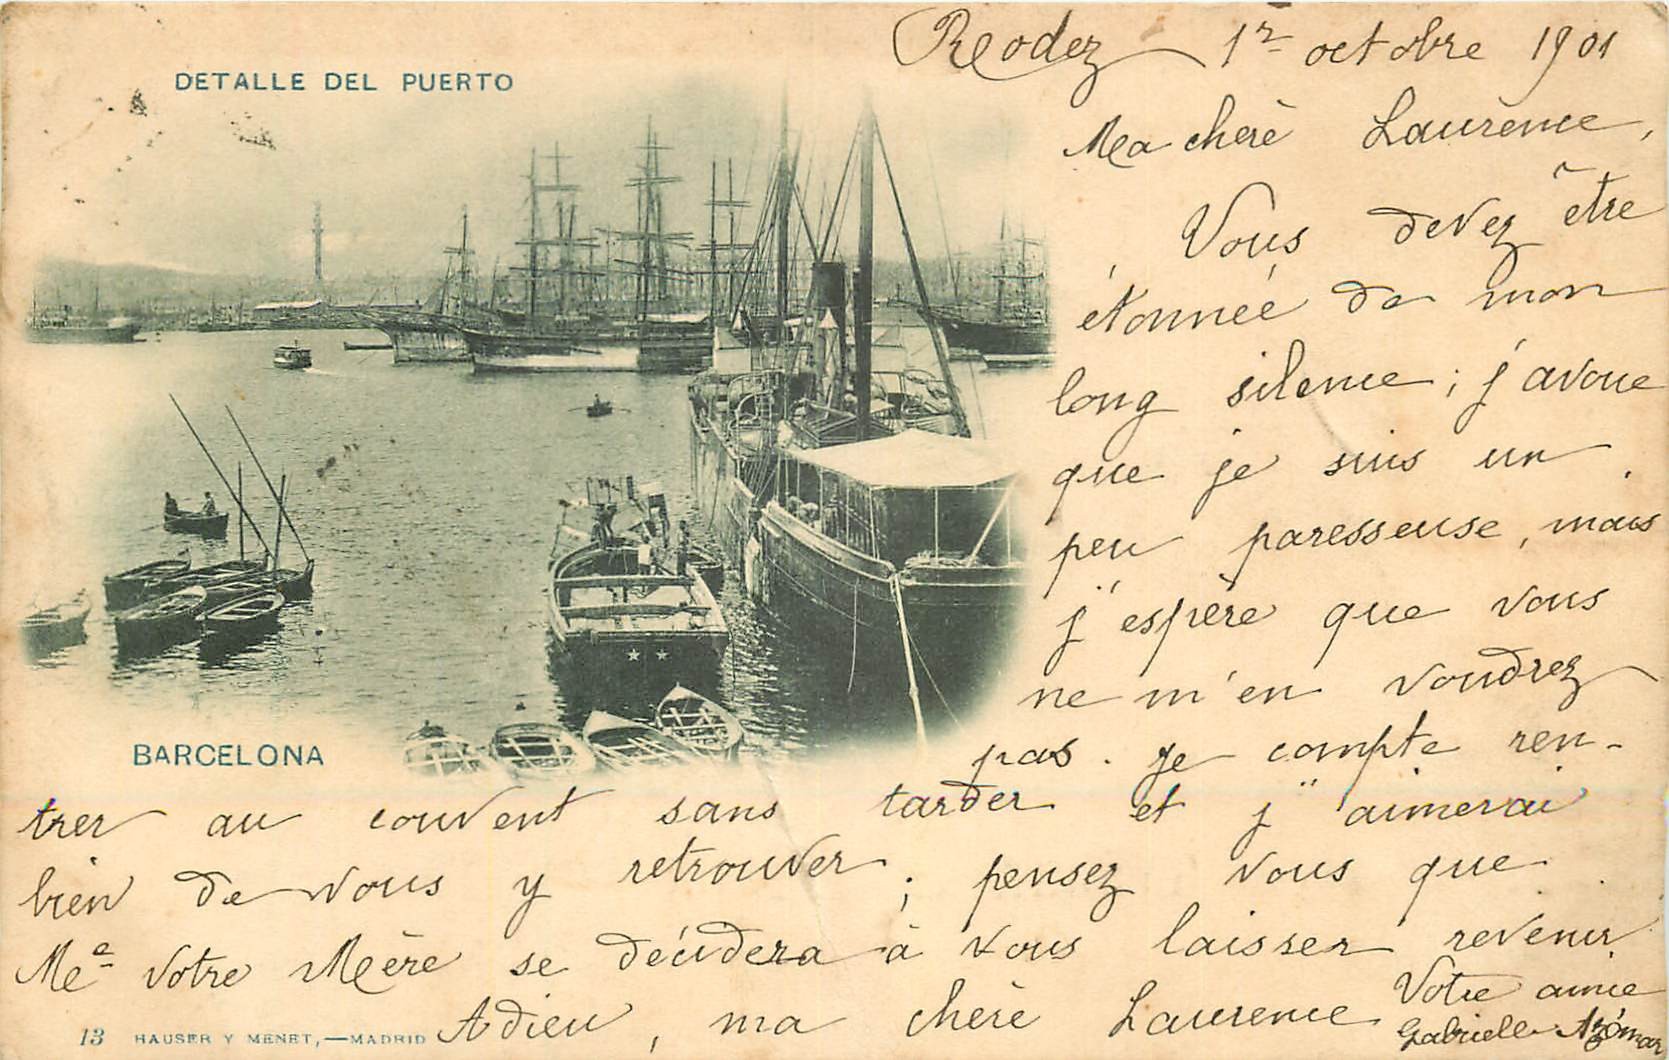 DETALLE DEL PUERTO
BARCELONA
Rodez 1er octobre 1901
Ma chère Laurence,
Vous devez être
étonnée de mon
long silence ; j'avoue
que je suis un
peu paresseuse, mais
j'espère que vous
ne m'en voudrez
pas. Je compte ren-
trer au couvent sans tarder et j'aimerai
bien de vous y retrouver ; pensez vous que
Me votre Mère se décidera à vous laisser revenir
Adieu, ma chère Laurence
Votre amie
Gabrielle
13 HAUSER Y MENET,—MADRID